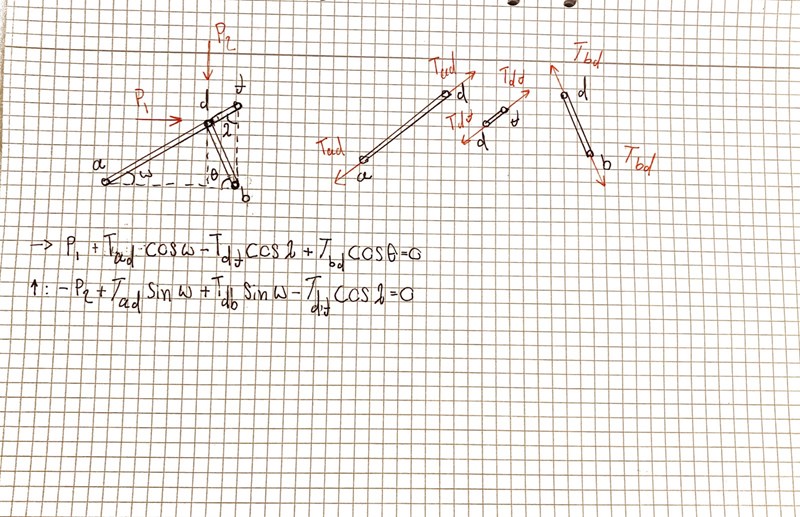 P₂
d
f
P₁
2
a
ω
θ
b
Tad
d
Tad
a
Tdf
f
Tdf
d
Tbd
d
Tbd
b
→ P₁ + Tad · cos ω − Tdf cos 2 + Tbd cos θ = 0
↑: − P₂ + Tad sin ω + Tdb sin ω − Tdf cos 2 = 0